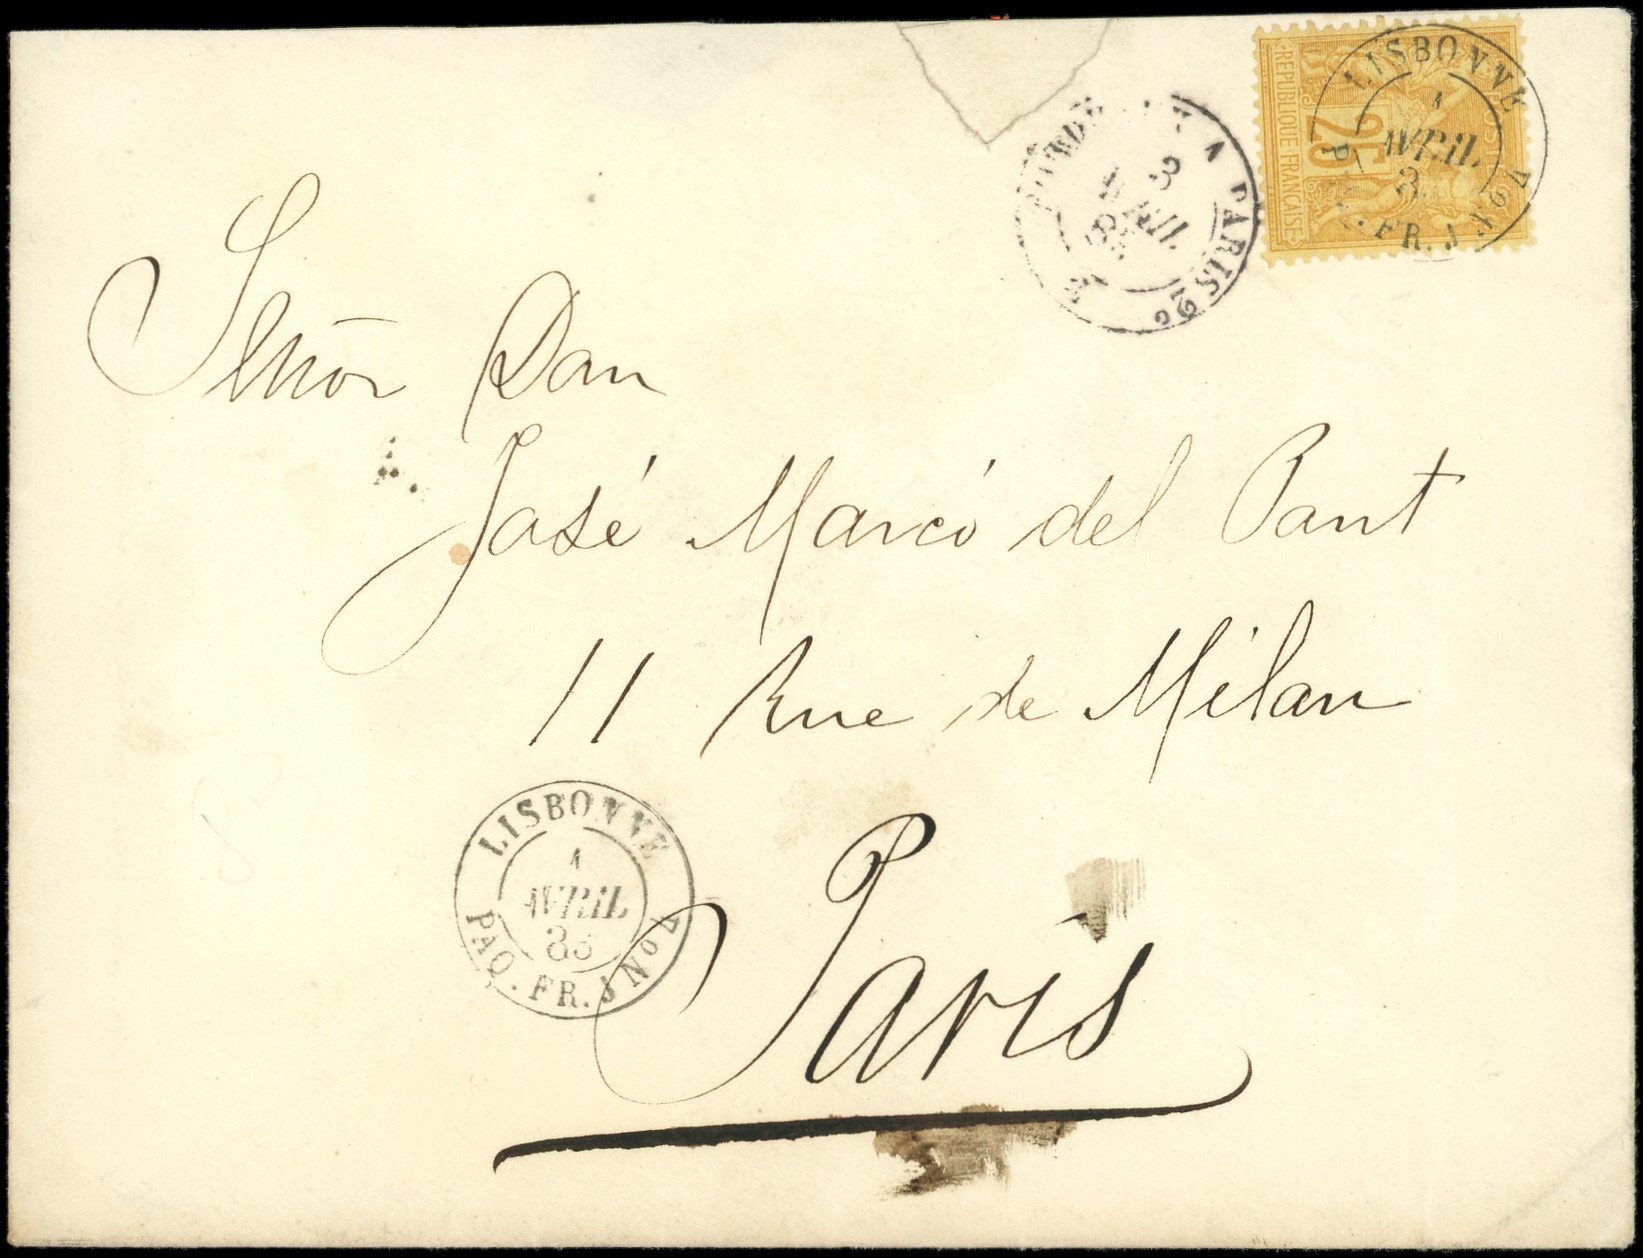 REPUBLIQUE FRANÇAISE
25
LISBONNE
1
AVRIL
PAQ. FR. J No 4
A PARIS 2o
Señor Don
José Marcó del Pont
11 Rue de Milan
LISBONNE
1
AVRIL
83
PAQ. FR. J No 4
Paris